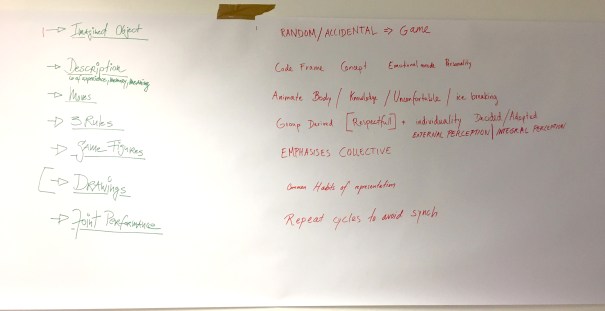 1 → Imagined Object
RANDOM/ACCIDENTAL ⇒ Game
→ Description
Code Frame Concept Emotional mode Personality
→ Moves
Animate Body / Knowledge / Uncomfortable / ice breaking
→ 3 Rules
Group Derived [Respectful] + individuality Decided/Adopted
EXTERNAL PERCEPTION / INTEGRAL PERCEPTION
→ Game Figures
EMPHASISES COLLECTIVE
→ DRAWINGS
Common Habits of representation
→ Joint Performance
Repeat cycles to avoid synch